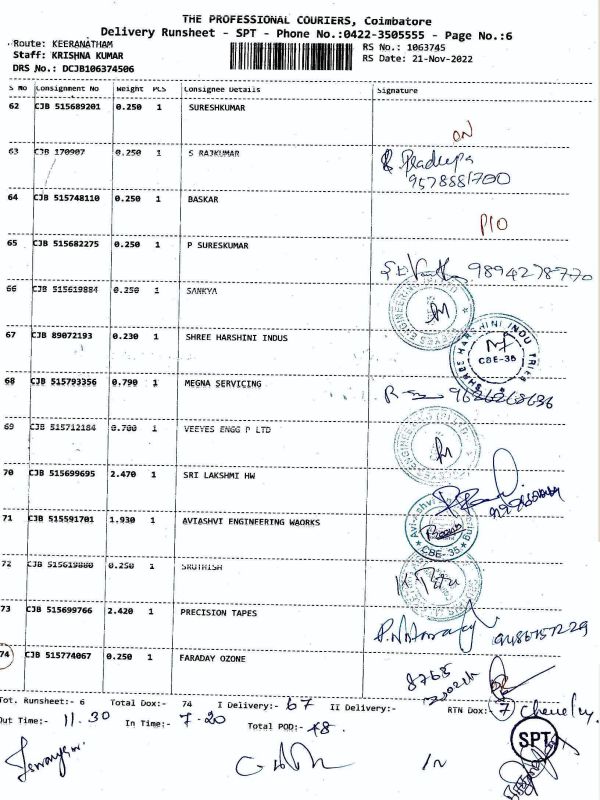 THE PROFESSIONAL COURIERS, Coimbatore
Delivery Runsheet - SPT - Phone No.:0422-3505555 - Page No.:6
Route: KEERANATHAM
Staff: KRISHNA KUMAR
DRS No.: DCJB106374506
RS No.: 1063745
RS Date: 21-Nov-2022
S No Consignment No Weight PCS Consignee Details Signature
62 CJB 515689201 0.250 1 SURESHKUMAR
ON
63 CJB 170907 0.250 1 S RAJKUMAR
Pradeepa
9578881700
64 CJB 515748110 0.250 1 BASKAR
P10
65 CJB 515682275 0.250 1 P SURESKUMAR
9894278770
66 CJB 515619884 0.250 1 SANKYA
67 CJB 89072193 0.230 1 SHREE HARSHINI INDUS
SHREE HARSHINI INDUSTRIES
CBE-35
68 CJB 515793356 0.790 1 MEGNA SERVICING
69 CJB 515712184 0.700 1 VEEYES ENGG P LTD
70 CJB 515699695 2.470 1 SRI LAKSHMI HW
71 CJB 515591701 1.930 1 AVIASHVI ENGINEERING WAORKS
CBE-35
72 CJB 515619880 0.250 1 SRUTHISH
73 CJB 515699766 2.420 1 PRECISION TAPES
74 CJB 515774067 0.250 1 FARADAY OZONE
Tot. Runsheet:- 6 Total Dox:- 74 I Delivery:- 67 II Delivery:- RTN Dox: 7
Out Time:- 11.30 In Time:- 7-20 Total POD:- 48.
SPT